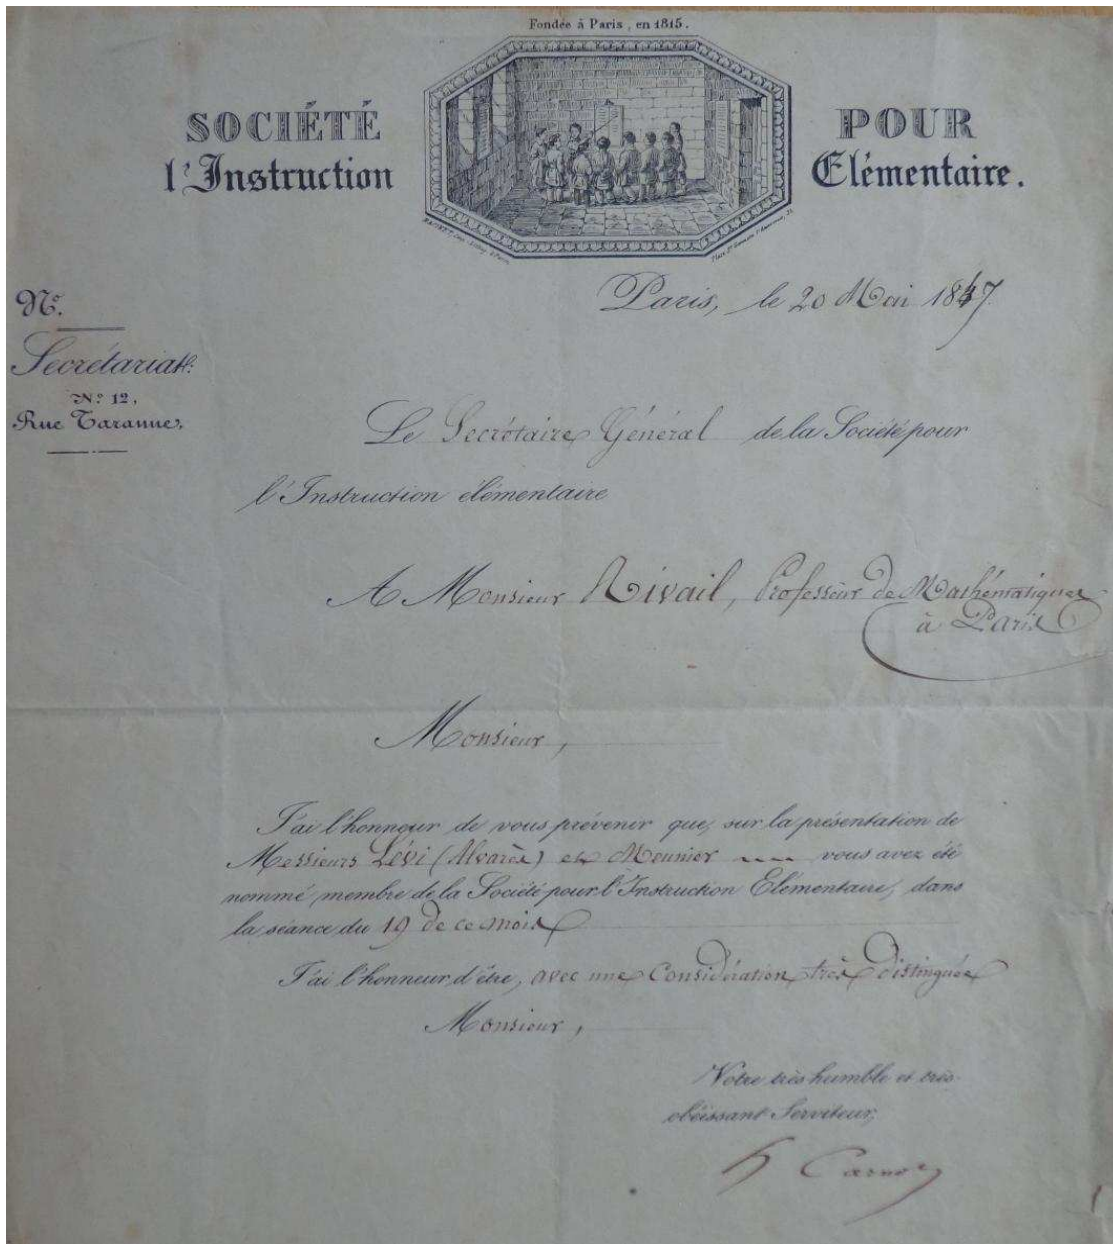 Fondée à Paris, en 1815.
SOCIÉTÉ POUR
l'Instruction Elémentaire.
Paris, le 20 Mai 1847
Nº.
Secrétariat.
Nº 12,
Rue Taranne.
Le Secrétaire Général de la Société pour
l'Instruction élémentaire
A Monsieur Rivail, Professeur de Mathématiques
à Paris
Monsieur,
J'ai l'honneur de vous prévenir que, sur la présentation de
Messieurs Lévi (Alvarès) et Meunier vous avez été
nommé membre de la Société pour l'Instruction Elémentaire, dans
la séance du 19 de ce mois
J'ai l'honneur d'être, avec une Considération très Distinguée
Monsieur,
Votre très humble et très
obéissant Serviteur,
H Carnot